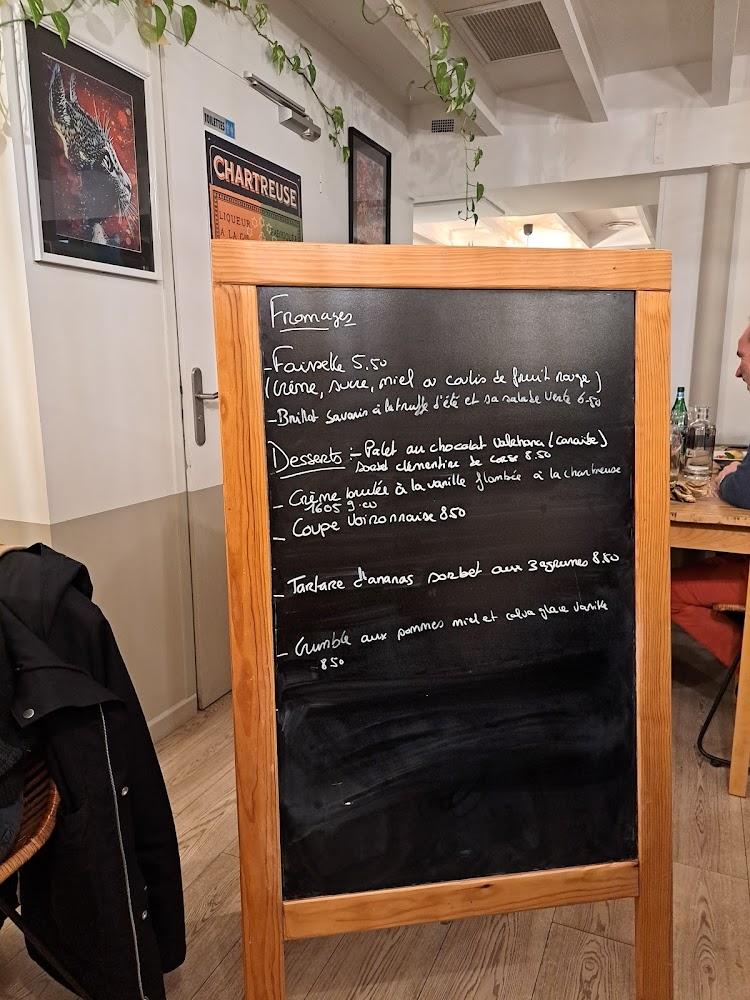 TOILETTES
CHARTREUSE
LIQUEUR
Fromages
- Faisselle 5.50
(Crème, sucre, miel ou coulis de fruit rouge)
- Brillat Savarin à la truffe d'été et sa salade verte 6.50
Desserts :- Palet au chocolat Valrhona (caraïbe)
sorbet clémentine de corse 8.50
- Crème brulée à la vanille flambée à la chartreuse
1605 9.00
- Coupe Voironnaise 850
- Tartare d'ananas sorbet aux 3 agrumes 8.50
- Crumble aux pommes miel et calva glace vanille
850